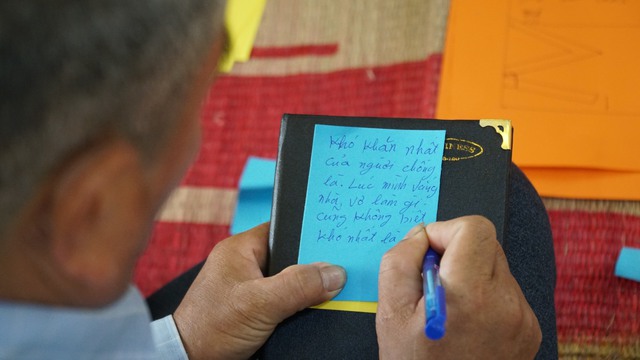 Khó khăn nhất
của người chồng
là. Lúc mình vắng
nhà, vợ làm gì
cũng không biết
khó nhất là
NESS